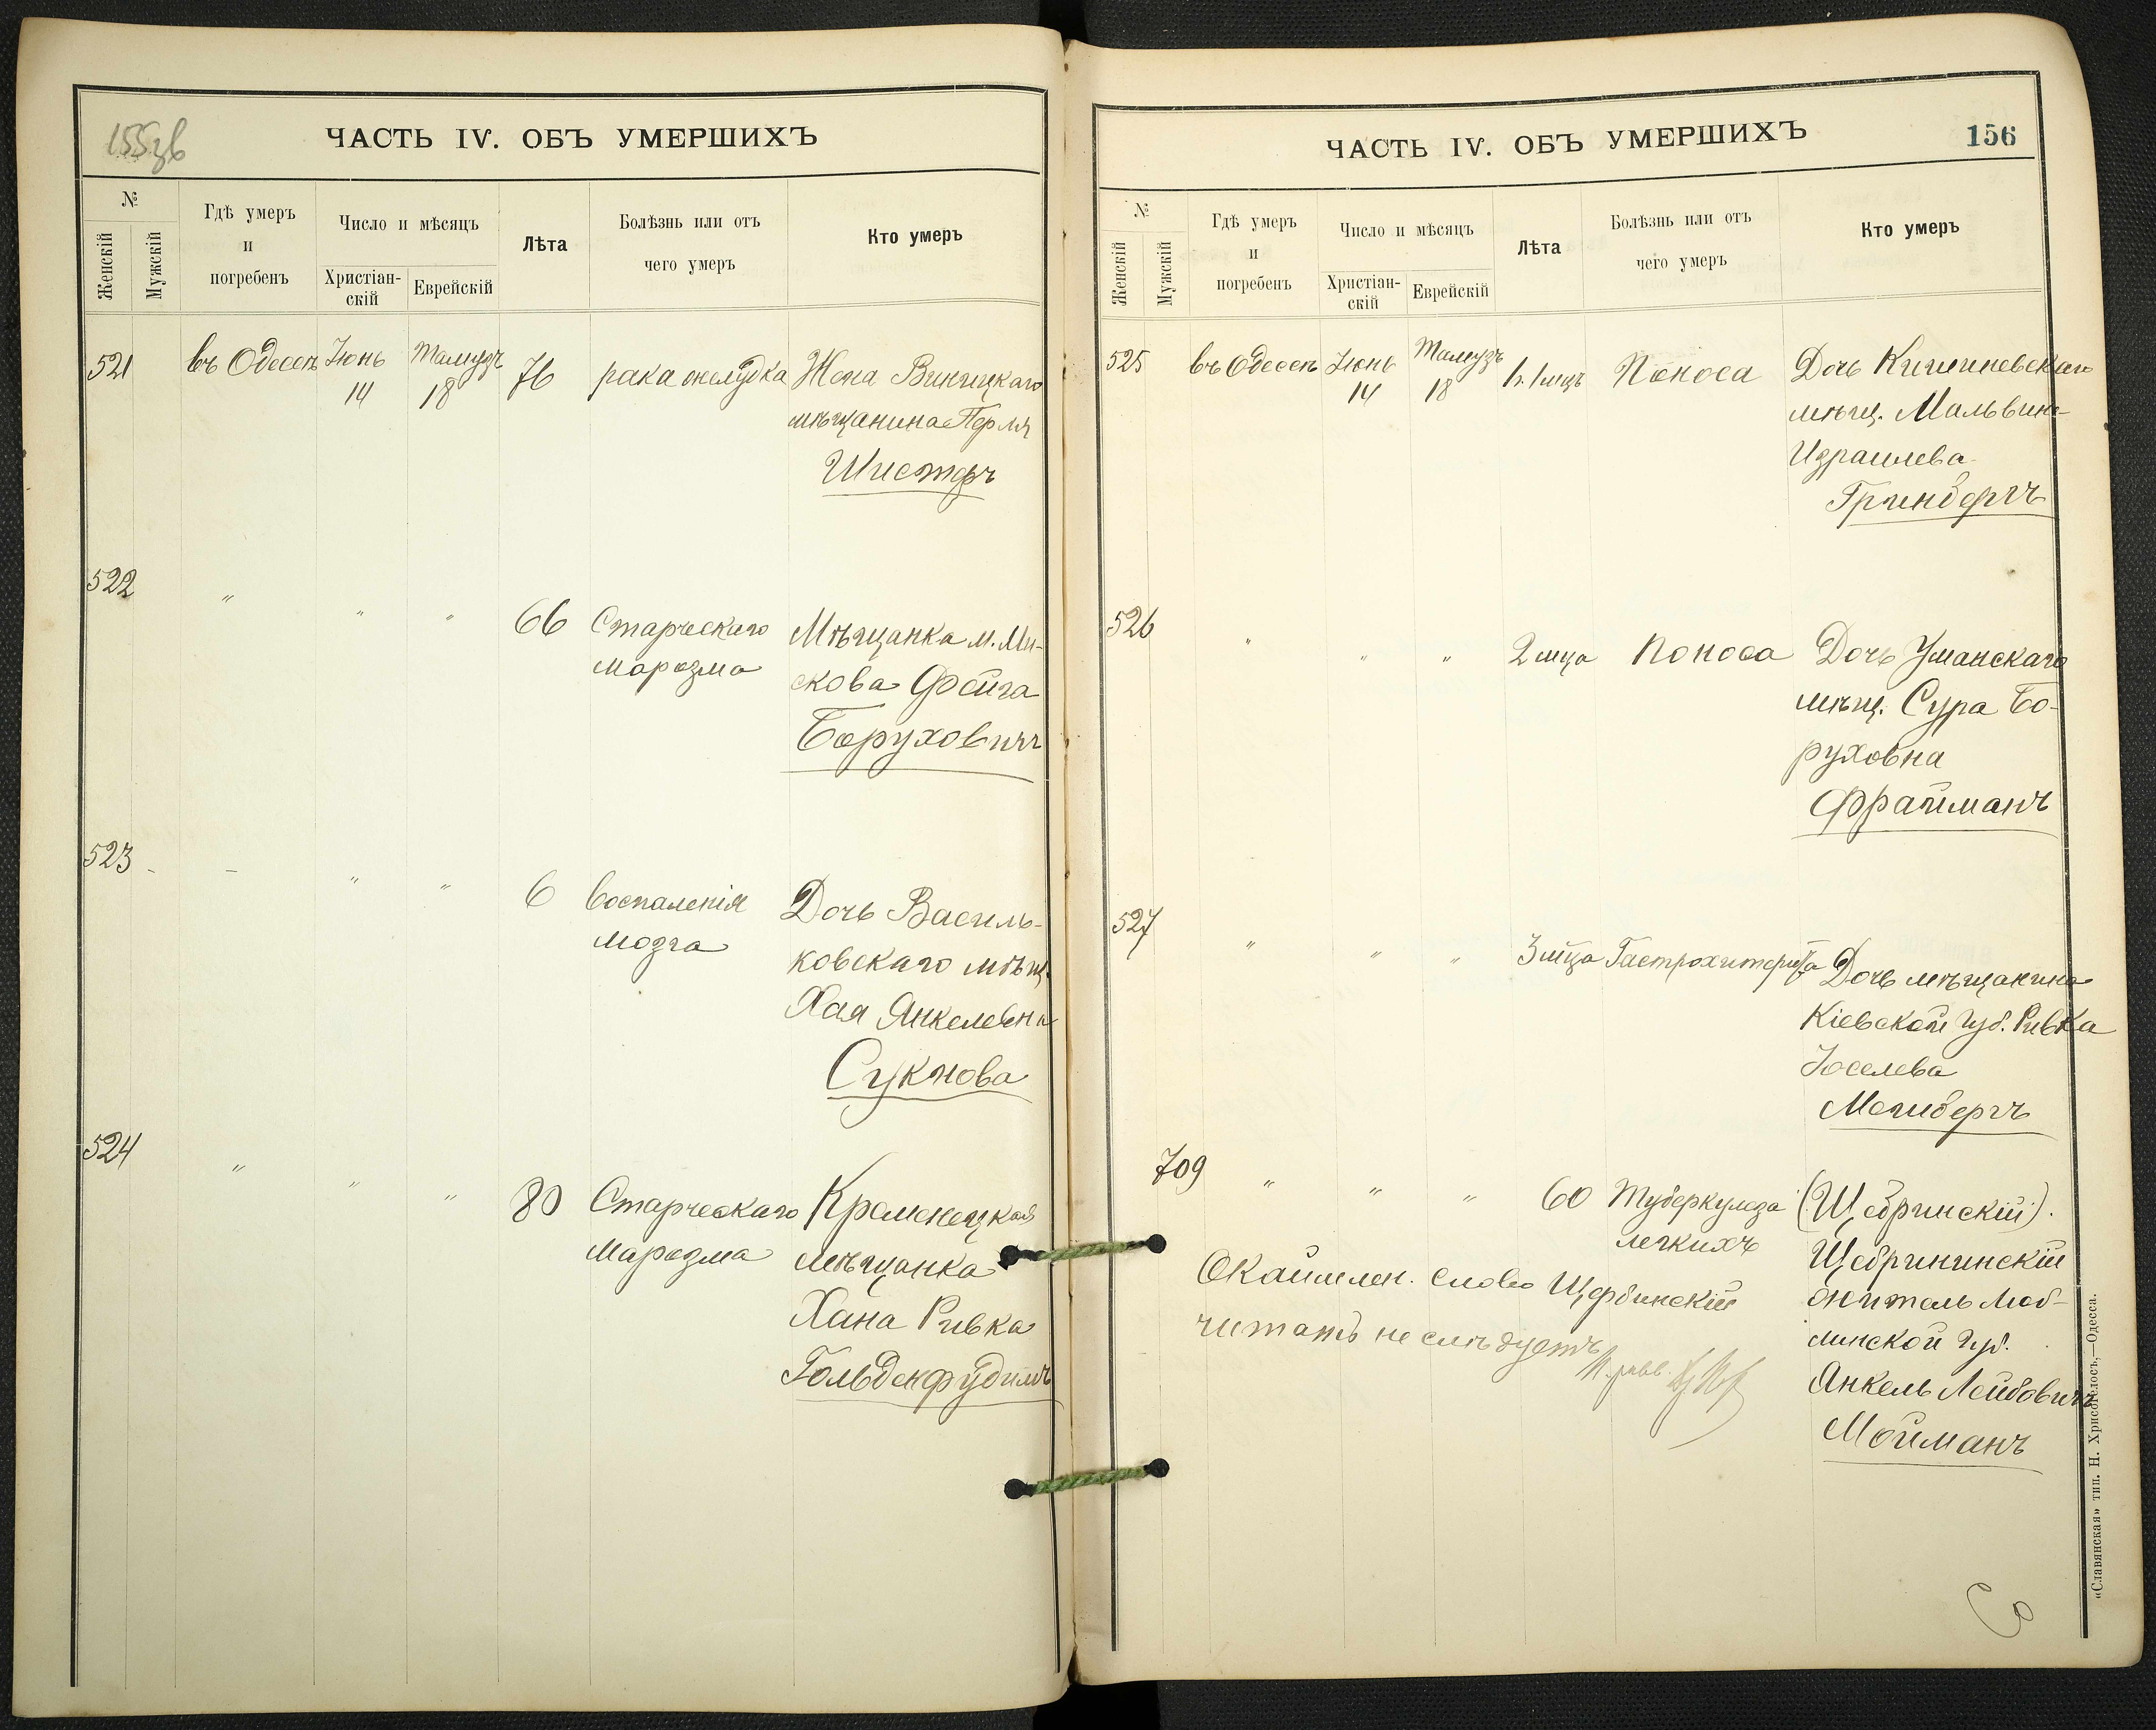 155зв
ЧАСТЬ IV. ОБЪ УМЕРШИХЪ
№
Женскій
Мужскій
Гдѣ умеръ
и
погребенъ
Число и мѣсяцъ
Христіан-
скій
Еврейскій
Лѣта
Болѣзнь или отъ
чего умеръ
Кто умеръ
521 въ Одессѣ Іюнь 14 Тамузъ 18 76 рака желудка Жена Винницкаго
мѣщанина Перля
522 " " " 66 Старческаго Мѣщанка м. Ми-
маразма скова Фейга
Боруховичъ
523 - - " " 6 воспаленія Дочь Василь-
мозга ковскаго мѣщ.
Хая Янкелевна
Сукнова
524 " " " 80 Старческаго Кременецкая
маразма мѣщанка
Хана Ривка
Гольденфудимъ
ЧАСТЬ IV. ОБЪ УМЕРШИХЪ
156
№
Женскій
Мужскій
Гдѣ умеръ
и
погребенъ
Число и мѣсяцъ
Христіан-
скій
Еврейскій
Лѣта
Болѣзнь или отъ
чего умеръ
Кто умеръ
525 въ Одессѣ Іюнь 14 Тамузъ 18 Поноса Дочь Кишиневскаго
мѣщ.
Израилева
Гринбергъ
526 " " " 2 мца Поноса Дочь Уманскаго
мѣщ. Сура Бо-
руховна
Фрайманъ
527 " " " 3 мца Дочь мѣщанина
Кіевской губ. Ривка
Іоселева
709 " " " 60 Туберкулеза (Щебринскій).
легкихъ Щебрининскій
житель Люб-
линской губ.
Янкель Лейбовичъ
Мойманъ
Окаймлен. слово Щербинскій
читать не слѣдуетъ
«Славянская» тип. Н. Хрисогелосъ,—Одесса.